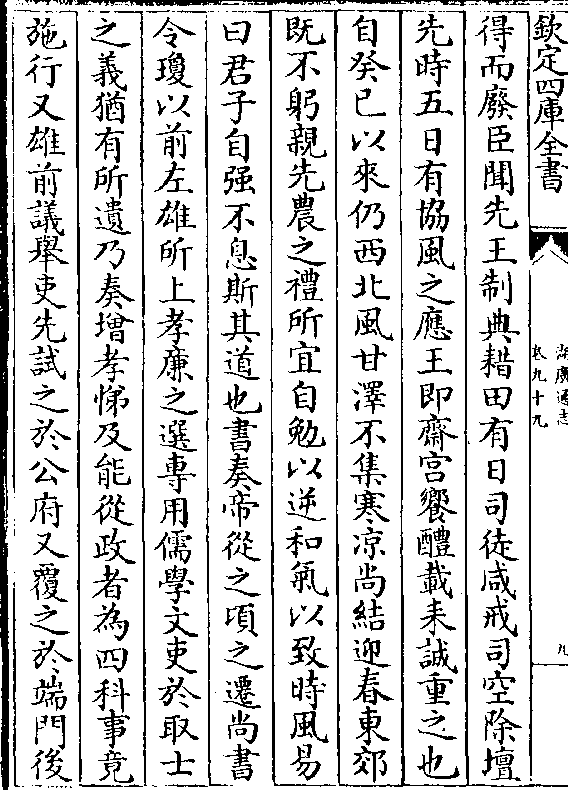 欽定四庫全書
湖廣通志
卷九十九
九
得而廢臣聞先王制典耤田有日司徒咸戒司空除壇
先時五日有協風之應王即齋宮饗醴載耒誠重之也
自癸已以來仍西北風甘澤不集寒凉尚結迎春東郊
既不躬親先農之禮所宜自勉以逆和氣以致時風易
曰君子自强不息斯其道也書奏帝從之頃之遷尚書
令瓊以前左雄所上孝廉之選專用儒學文吏於取士
之義猶有所遺乃奏增孝悌及能從政者為四科事竟
施行又雄前議舉吏先試之於公府又覆之於端門後